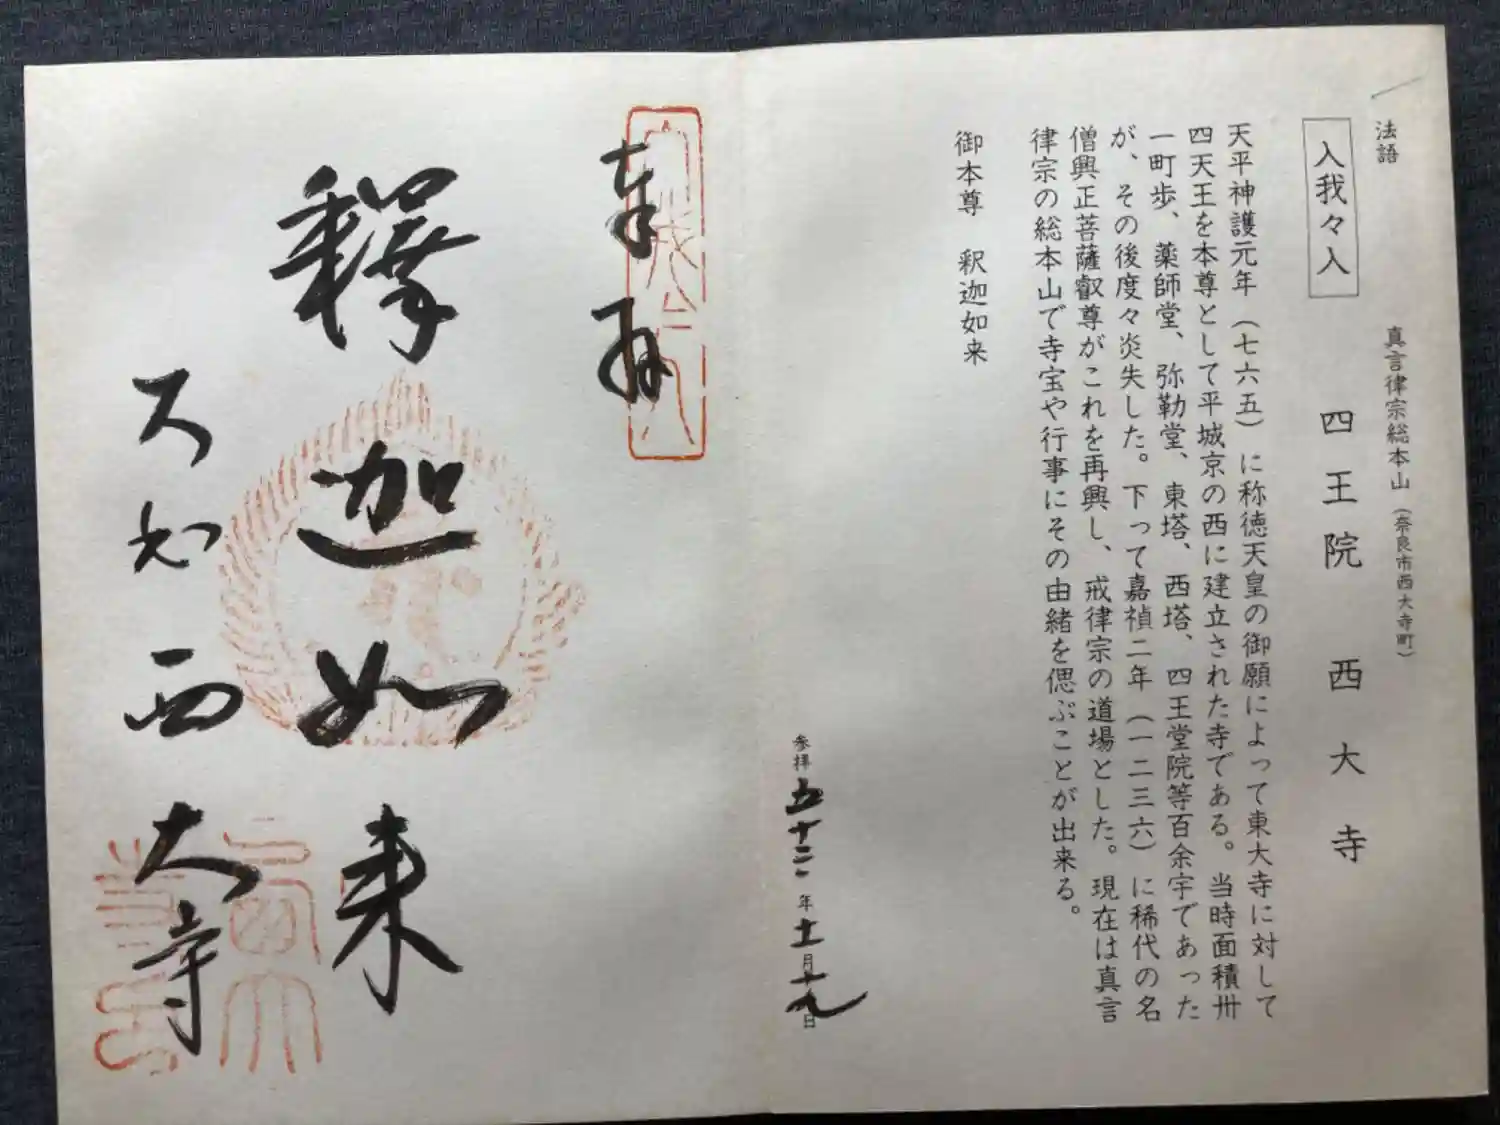 法語
真言律宗総本山（奈良市西大寺町）
入我々入
四王院 西大寺
天平神護元年（七六五）に称徳天皇の御願によって東大寺に対して
四天王を本尊として平城京の西に建立された寺である。当時面積卅
一町歩、薬師堂、弥勒堂、東塔、西塔、四王堂院等百余宇であった
が、その後度々炎失した。下って嘉禎二年（一二三六）に稀代の名
僧興正菩薩叡尊がこれを再興し、戒律宗の道場とした。現在は真言
律宗の総本山で寺宝や行事にその由緒を偲ぶことが出来る。
御本尊 釈迦如来
参拝 五十三年 十一月 十九日
奉拝
釋迦如来
西大寺